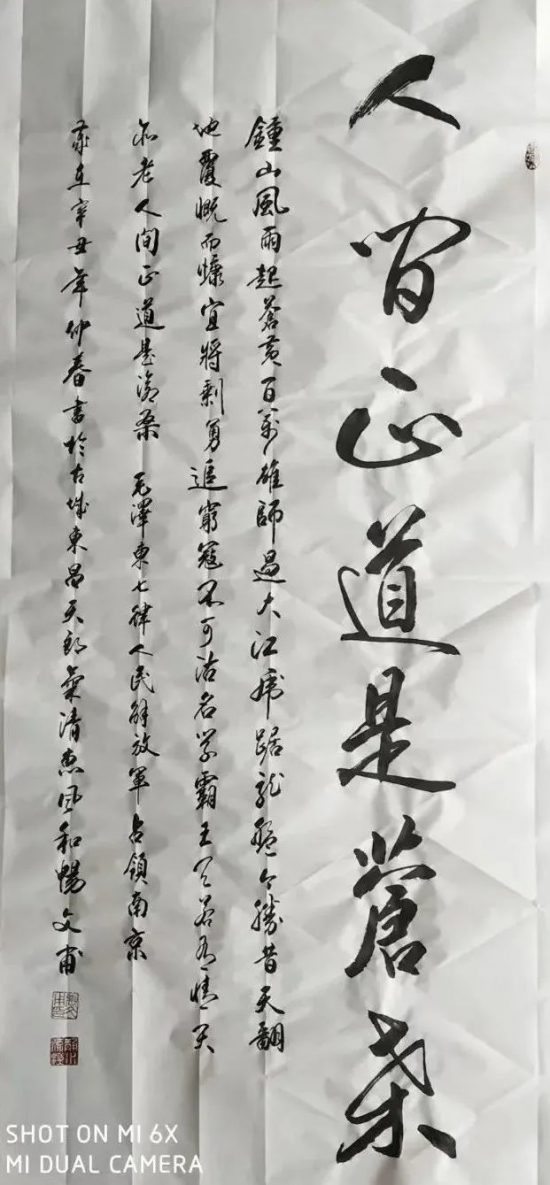 人间正道是蒼桑
鍾山風雨起蒼黄百萬雄師過大江虎踞龍盤今勝昔天翻
地覆慨而慷宜將剩勇追窮寇不可沽名学霸王天若有情天
亦老人间正道是滄桑 毛澤東七律人民解放軍占領南京
歲在辛丑年仲春書於古城東昌天朗氣清惠风和暢文甫
SHOT ON MI 6X
MI DUAL CAMERA